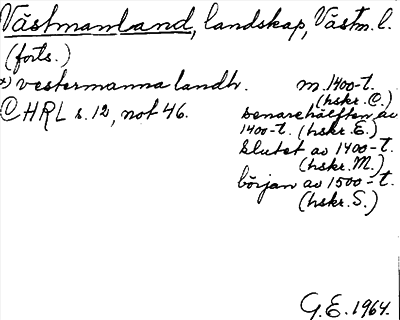 Västmanland, landskap, Västm. l.
(forts.)
*) vestermanna landh. m. 1400-t.
(hskr. C.)
© HRL s. 12, not 46. senare hälften av
1400-t. (hskr. E.)
slutet av 1400-t.
(hskr. M.)
början av 1500-t.
(hskr. S.)
G. E. 1964.